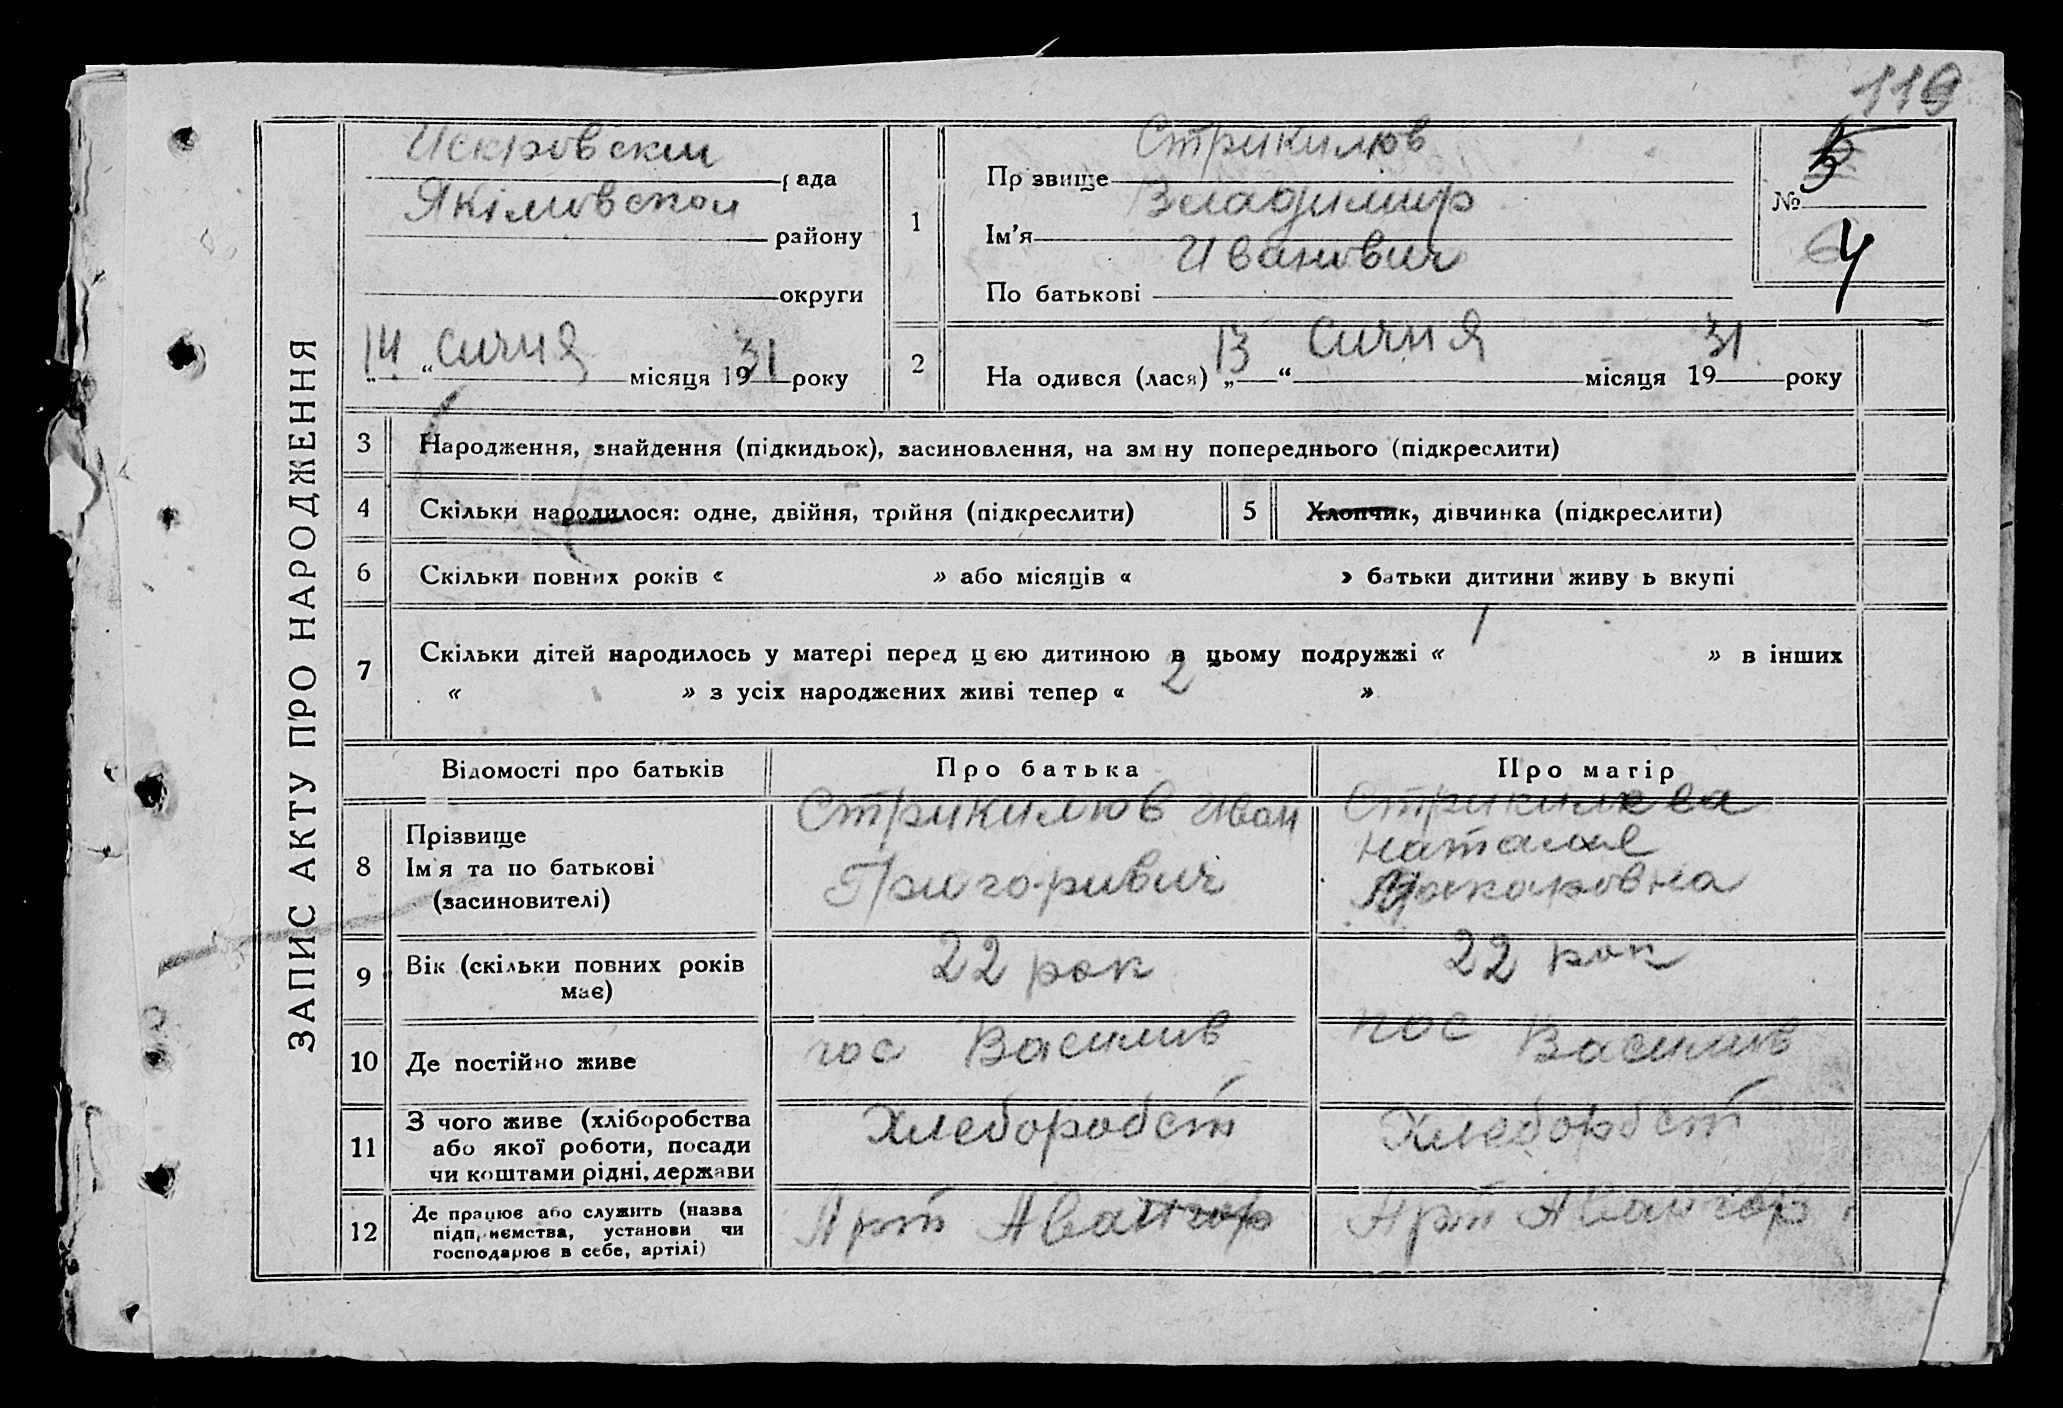 119
ЗАПИС АКТУ ПРО НАРОДЖЕННЯ
Искровскии рада
Якімовской району
округи
„14“ сичня місяця 1931 року
1
Прізвище Стрикилюв
Ім’я Владимир
По батькові Иванович
№ 5
4
2
На одився (лася) „13“ сичня місяця 1931 року
3 Народження, знайдення (підкидьок), засиновлення, на зм ну попереднього (підкреслити)
4 Скільки народилося: одне, двійня, трійня (підкреслити)
5 Хлопчик, дівчинка (підкреслити)
6 Скільки повних років « » або місяців « » батьки дитини живу ь вкупі
7 Скільки дітей народилось у матері перед цією дитиною в цьому подружжі « 1 » в інших
« » з усіх народжених живі тепер « 2 »
Відомості про батьків
Про батька
Про матір
8
Прізвище
Ім'я та по батькові
(засиновителі)
Стрикилюв Иван
Григоривич
Стрикилюва
Наталие
Макаровна
9
Вік (скільки повних років
має)
22 рок
22 рок
10 Де постійно живе
пос Василив
пос Василив
11
З чого живе (хліборобства
або якої роботи, посади
чи коштами рідні, держави
Хлеборобст
Хлеборбст
12
Де працює або служить (назва
підприємства, установи чи
господарює в себе, артілі)
Арт Авангор
Арт Авангор